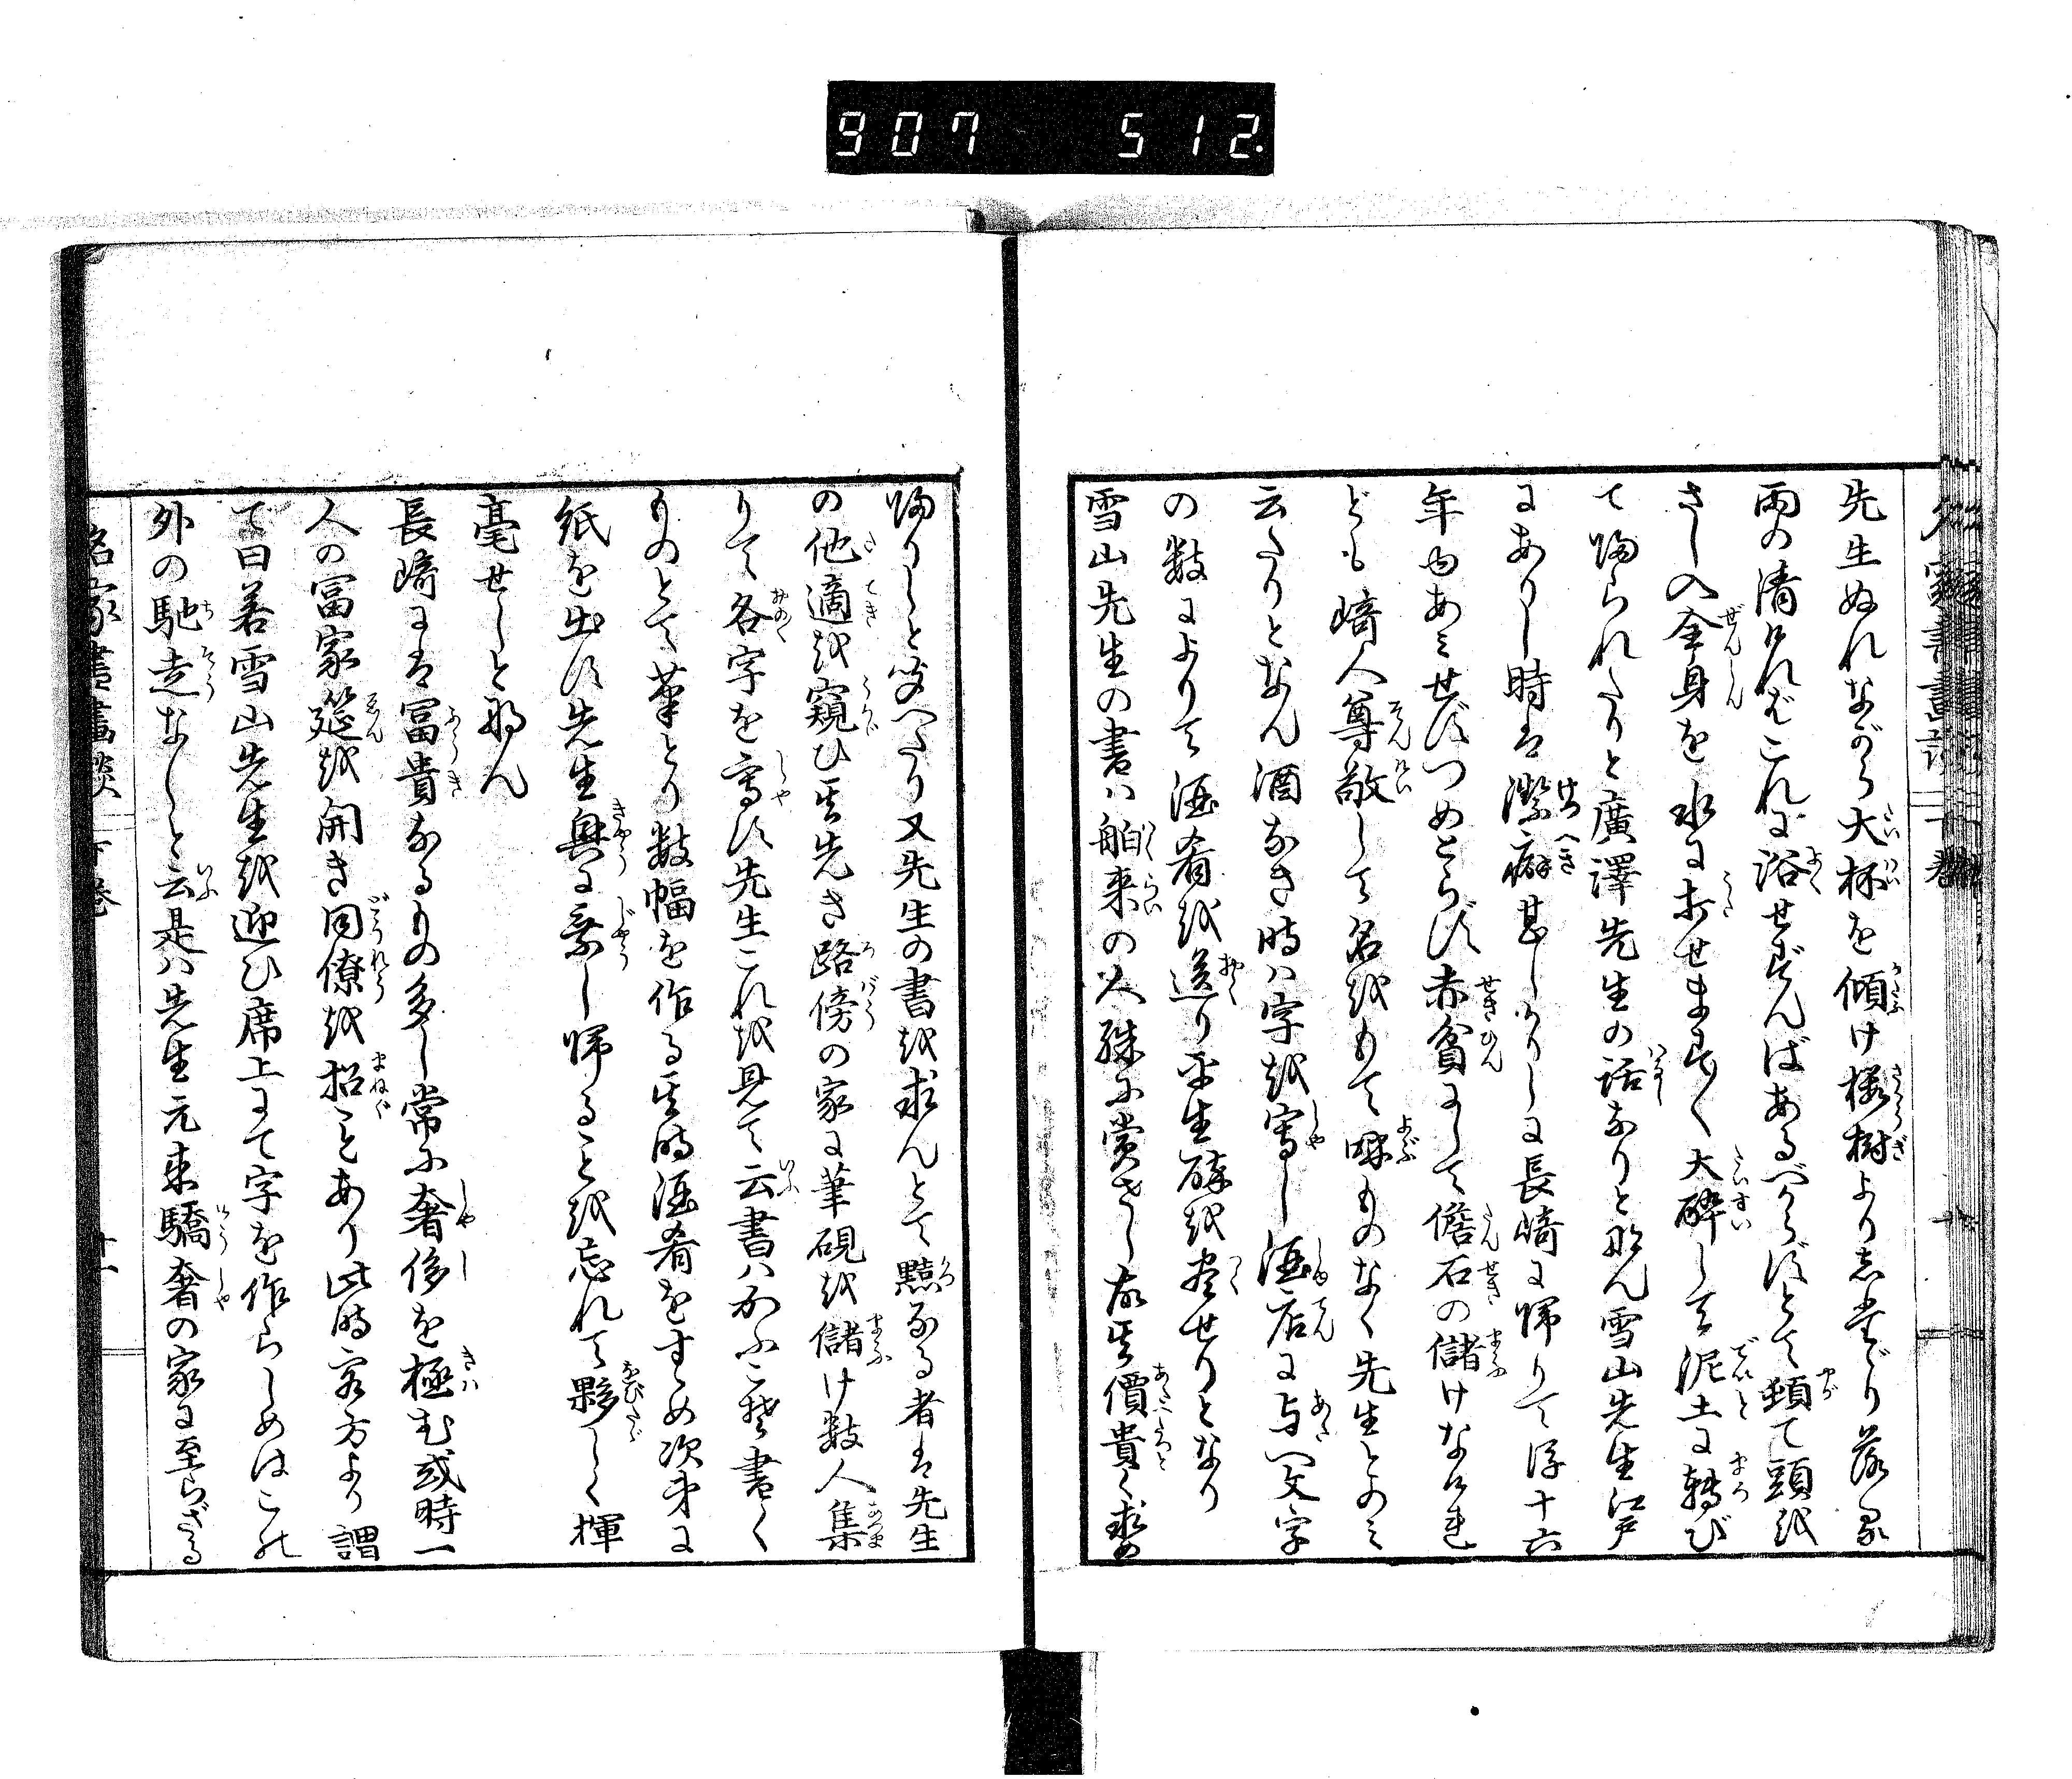 907 512
先生ぬれながら大杯を傾け桜樹よりしたゝり落る
雨の清ければこれに浴せずんばあるべからずとて頓て頭を
さし入全身を水にひたせまもなく大酔して泥土に転び
て帰られたりと廣澤先生の話なりとなん雪山先生江戸
にありし時は潔癖甚しかりしに長崎に帰りて後十六
年ゆあみせずつめとらず赤貧にして儋石の儲けなけれ
ども崎人尊敬して名をもて呼ものなく先生とのみ
云たりとなん酒なき時ハ字を写し酒店に与へ文字
の数によりて酒肴を送り平生酔を尽せりとなり
雪山先生の書ハ舶来の人殊に賞さし故其價貴く求め
帰りしと聞へたり又先生の書を求んとて黠なる者は先生
の他適を窺ひ其先き路傍の家に筆硯を儲け数人集
りて各字を写す先生これを見て云書ハかふこそ書く
ものとて筆とり数幅を作る其時酒肴をすゝめ次第に
紙を出す先生興に乗し帰ることを忘れて夥しく揮
毫せしとなん
長崎には冨貴なるもの多し常に奢侈を極む或時一
人の冨家筵を開き同僚を招ことあり此時客方より謂
て曰若雪山先生を迎ひ席上にて字を作らしめはこの
外の馳走なしと云是ハ先生元来驕奢の家に至らざる
名家書畫談 十一